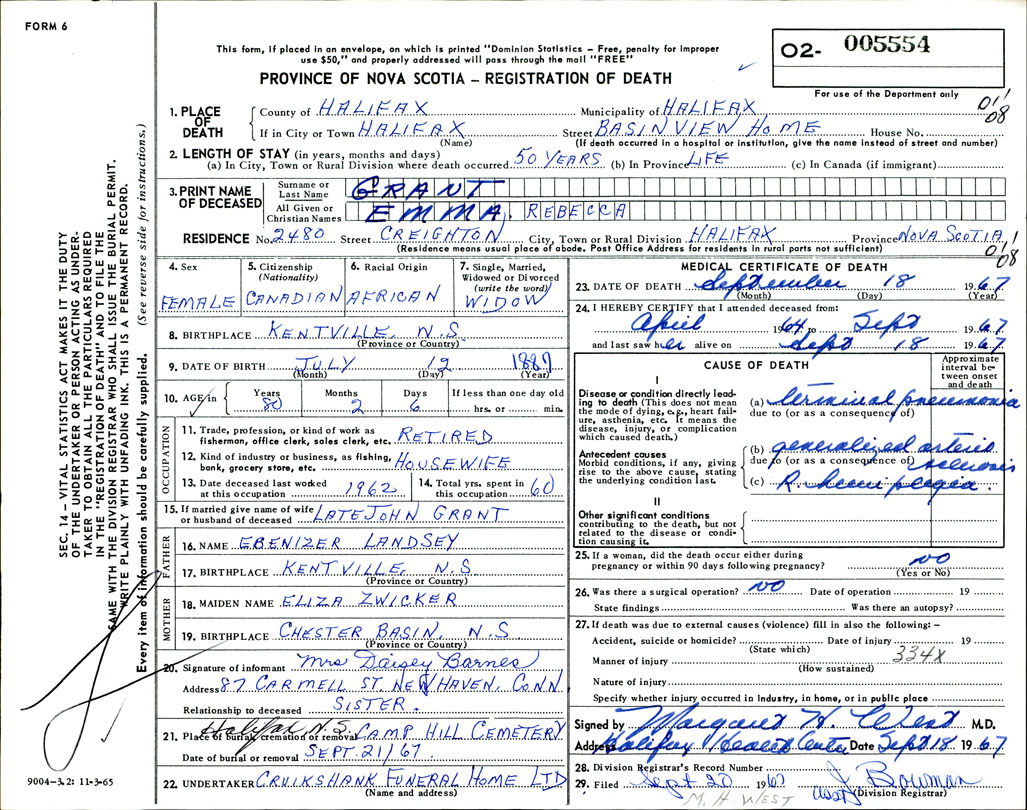 FORM 6
This form, if placed in an envelope, on which is printed "Dominion Statistics – Free, penalty for improper
use $50," and properly addressed will pass through the mail "FREE"
PROVINCE OF NOVA SCOTIA – REGISTRATION OF DEATH
02- 005554
For use of the Department only
1. PLACE OF DEATH
County of HALIFAX Municipality of HALIFAX 01/08
If in City or Town HALIFAX Street BASIN VIEW HOME House No.
(Name) (If death occurred in a hospital or institution, give the name instead of street and number)
2. LENGTH OF STAY (in years, months and days)
(a) In City, Town or Rural Division where death occurred 50 YEARS (b) In Province LIFE (c) In Canada (if immigrant)
3. PRINT NAME OF DECEASED
Surname or Last Name GRANT
All Given or Christian Names EMMA. REBECCA
RESIDENCE No. 2480 Street CREIGHTON City, Town or Rural Division HALIFAX Province NOVA SCOTIA 01/08
(Residence means usual place of abode. Post Office Address for residents in rural parts not sufficient)
4. Sex FEMALE
5. Citizenship (Nationality) CANADIAN
6. Racial Origin AFRICAN
7. Single, Married, Widowed or Divorced (write the word) WIDOW
8. BIRTHPLACE KENTVILLE, N.S.
(Province or Country)
9. DATE OF BIRTH JULY 12 1887
(Month) (Day) (Year)
10. AGE in Years 80 Months 2 Days 6 If less than one day old hrs. or min.
OCCUPATION
11. Trade, profession, or kind of work as fisherman, office clerk, sales clerk, etc. RETIRED
12. Kind of industry or business, as fishing, bank, grocery store, etc. HOUSEWIFE
13. Date deceased last worked at this occupation 1962
14. Total yrs. spent in this occupation 60
15. If married give name of wife or husband of deceased LATE JOHN GRANT
FATHER
16. NAME EBENIZER LANDSEY
17. BIRTHPLACE KENTVILLE, N.S
(Province or Country)
MOTHER
18. MAIDEN NAME ELIZA ZWICKER
19. BIRTHPLACE CHESTER BASIN, N.S
(Province or Country)
20. Signature of informant Mrs Daisey Barnes
Address 87 CARMELL ST. NEW HAVEN, CONN
Relationship to deceased SISTER.
21. Place of burial, cremation or removal Halifax N.S. CAMP HILL CEMETERY
Date of burial or removal SEPT. 21/67
22. UNDERTAKER CRUIKSHANK FUNERAL HOME LTD
(Name and address)
MEDICAL CERTIFICATE OF DEATH
23. DATE OF DEATH September 18 1967
(Month) (Day) (Year)
24. I HEREBY CERTIFY that I attended deceased from:
April 1964 to Sept 1967
and last saw her alive on Sept 18 1967
CAUSE OF DEATH
Approximate interval between onset and death
I
Disease or condition directly leading to death (This does not mean the mode of dying, e.g., heart failure, asthenia, etc. It means the disease, injury, or complication which caused death.)
(a) terminal pneumonia
due to (or as a consequence of)
Antecedent causes
Morbid conditions, if any, giving rise to the above cause, stating the underlying condition last.
(b) generalized arterio sclerosis
due to (or as a consequence of)
(c) R. hemiplegia.
II
Other significant conditions
contributing to the death, but not related to the disease or condition causing it.
25. If a woman, did the death occur either during pregnancy or within 90 days following pregnancy? NO
(Yes or No)
26. Was there a surgical operation? NO Date of operation 19
State findings Was there an autopsy?
27. If death was due to external causes (violence) fill in also the following: –
Accident, suicide or homicide? Date of injury 19
(State which) 334X
Manner of injury
(How sustained)
Nature of injury
Specify whether injury occurred in industry, in home, or in public place
Signed by Margaret H. West M.D.
Address Halifax Health Centre Date Sept 18 1967
28. Division Registrar's Record Number
29. Filed Sept 20 1967 J Bowman
M. H. WEST Asst (Division Registrar)
SEC. 14 – VITAL STATISTICS ACT MAKES IT THE DUTY
OF THE UNDERTAKER OR PERSON ACTING AS UNDER-
TAKER TO OBTAIN ALL THE PARTICULARS REQUIRED
IN THE "REGISTRATION OF DEATH" AND TO FILE THE
SAME WITH THE DIVISION REGISTRAR WHO SHALL ISSUE THE BURIAL PERMIT.
WRITE PLAINLY WITH UNFADING INK. THIS IS A PERMANENT RECORD.
Every item of information should be carefully supplied. (See reverse side for instructions.)
9004-3.2: 11-3-65